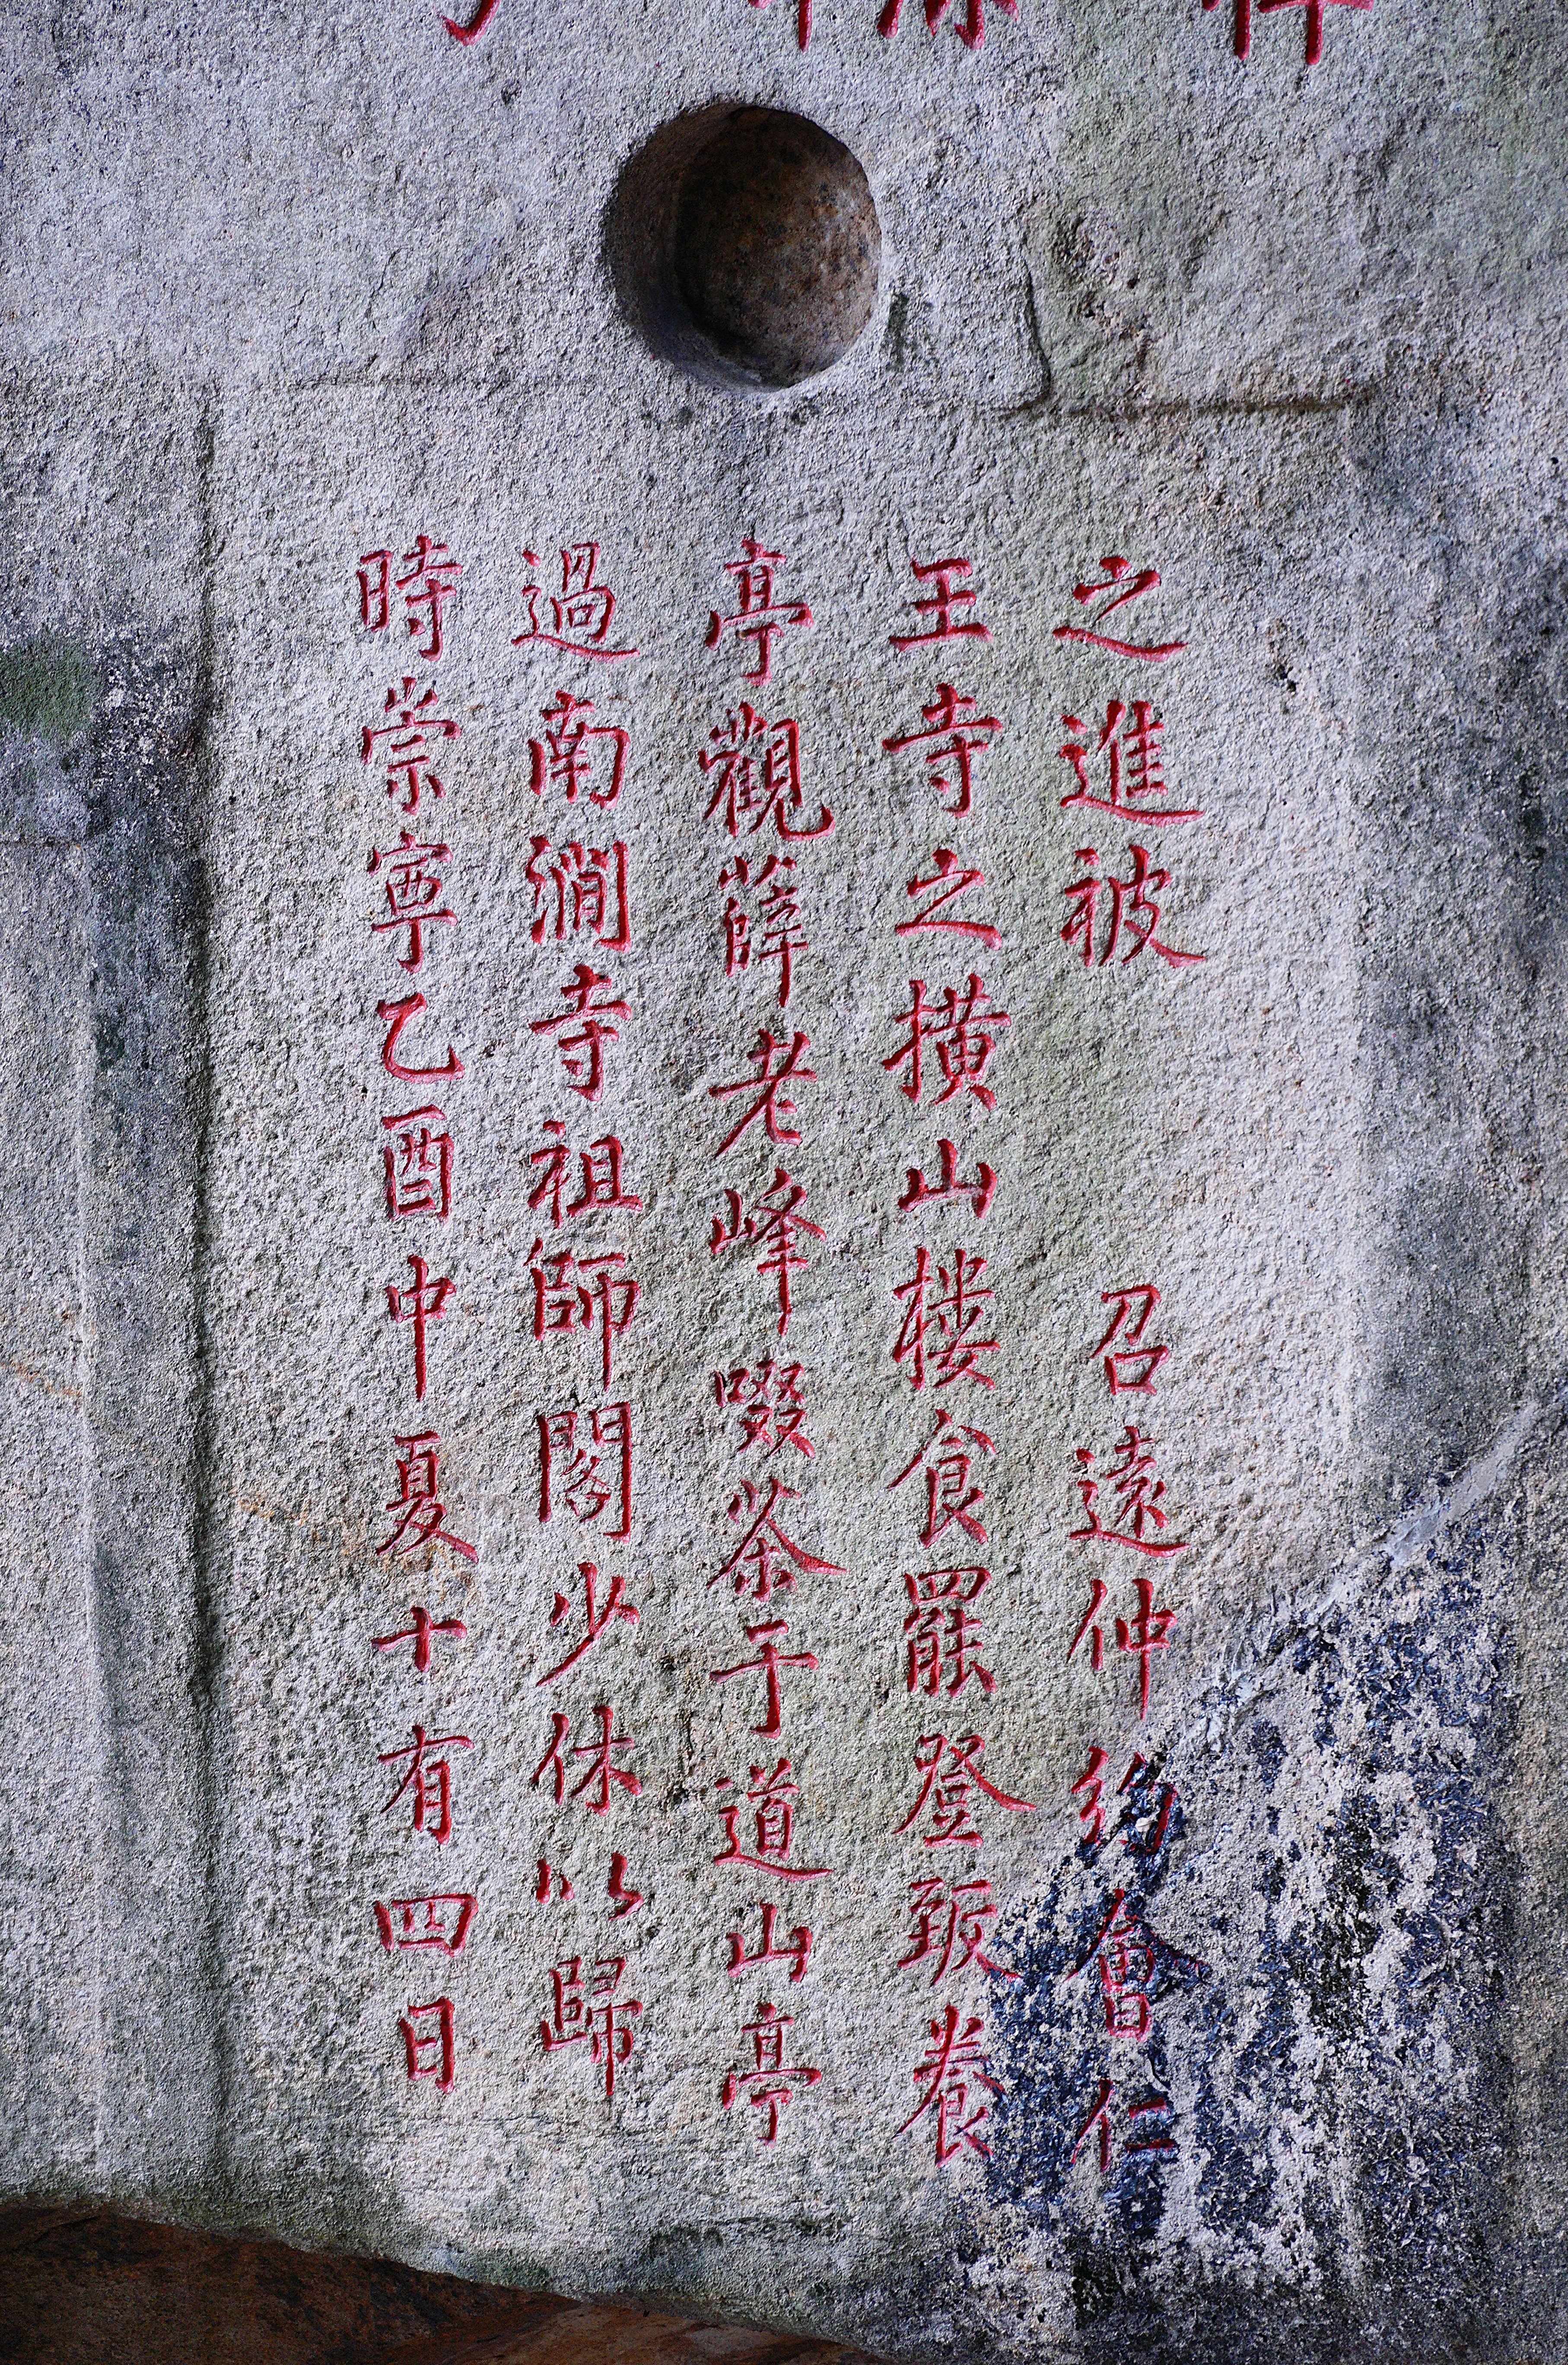 之進被　召遠仲約會仁
王寺之橫山樓食罷登致養
亭觀薛老峰啜茶于道山亭
過南澗寺祖師閣少休以歸
時崇寧乙酉中夏十有四日